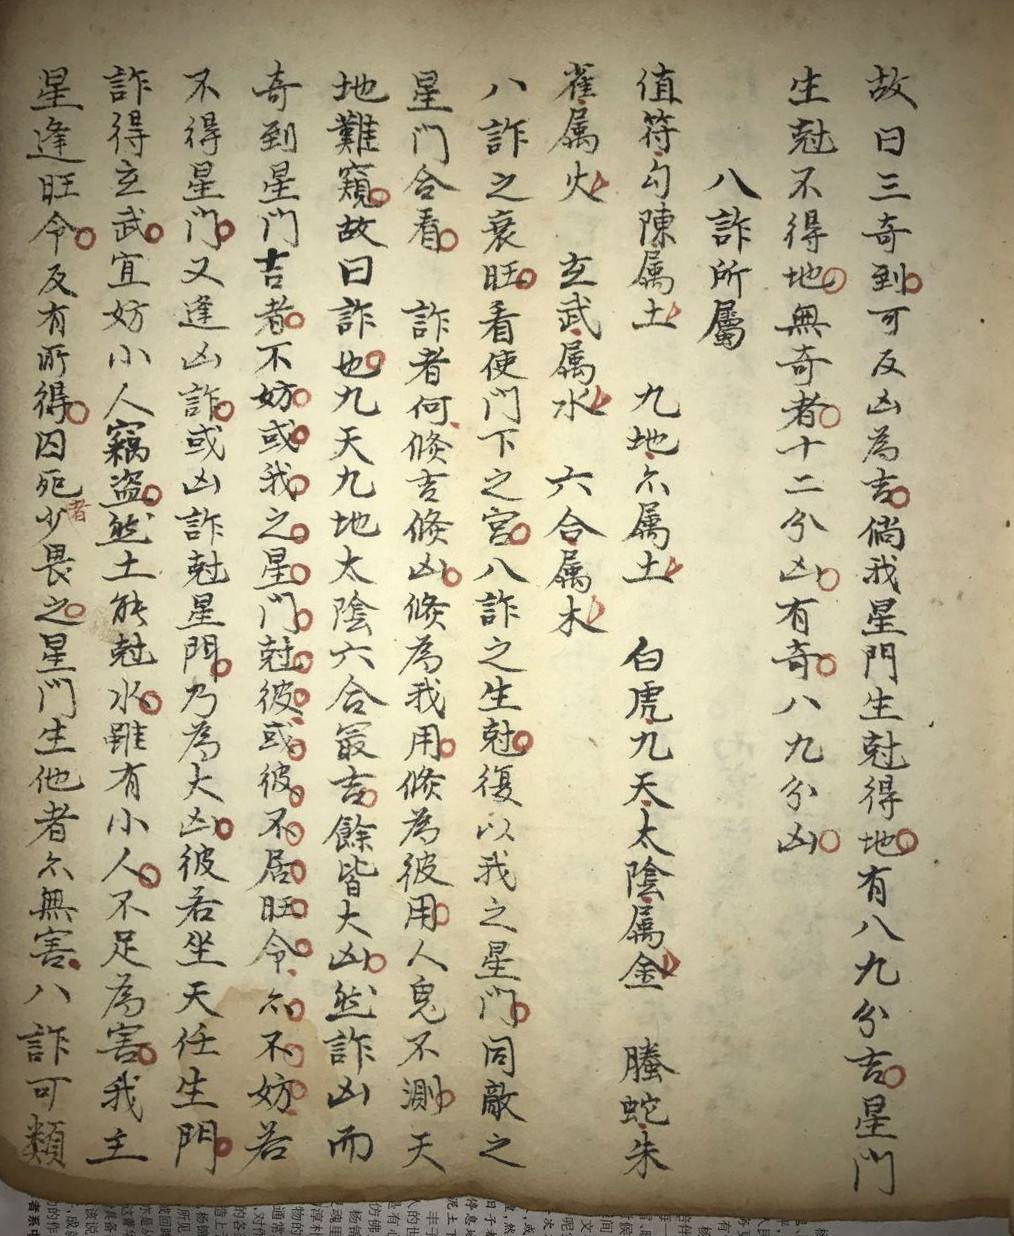 故曰三奇到可反凶為吉倘我星門生尅得地有八九分吉星门
生尅不得地無奇者十二分凶有奇八九分凶
八詐所屬
值符勾陳属土 九地尒属土 白虎九天太陰属金 螣蛇朱
雀属火 玄武属水 六合属木
八詐之衰旺看使门下之宫八詐之生尅復以我之星门同敵之
星门合看 詐者何倐吉倐凶倐為我用倐為彼用人鬼不測天
地難窺故曰詐也九天九地太陰六合㝡吉餘皆大凶然詐凶而
奇到星门吉者不妨或我之星门尅彼或彼不居旺令尒不妨若
不得星门又逢凶詐或凶詐尅星門乃為大凶彼若坐天任生門
詐得玄武宜妨小人竊盜然土能尅水雖有小人不足為害我主
星逢旺令反有所得囚死者少畏之星门生他者尒無害八詐可類